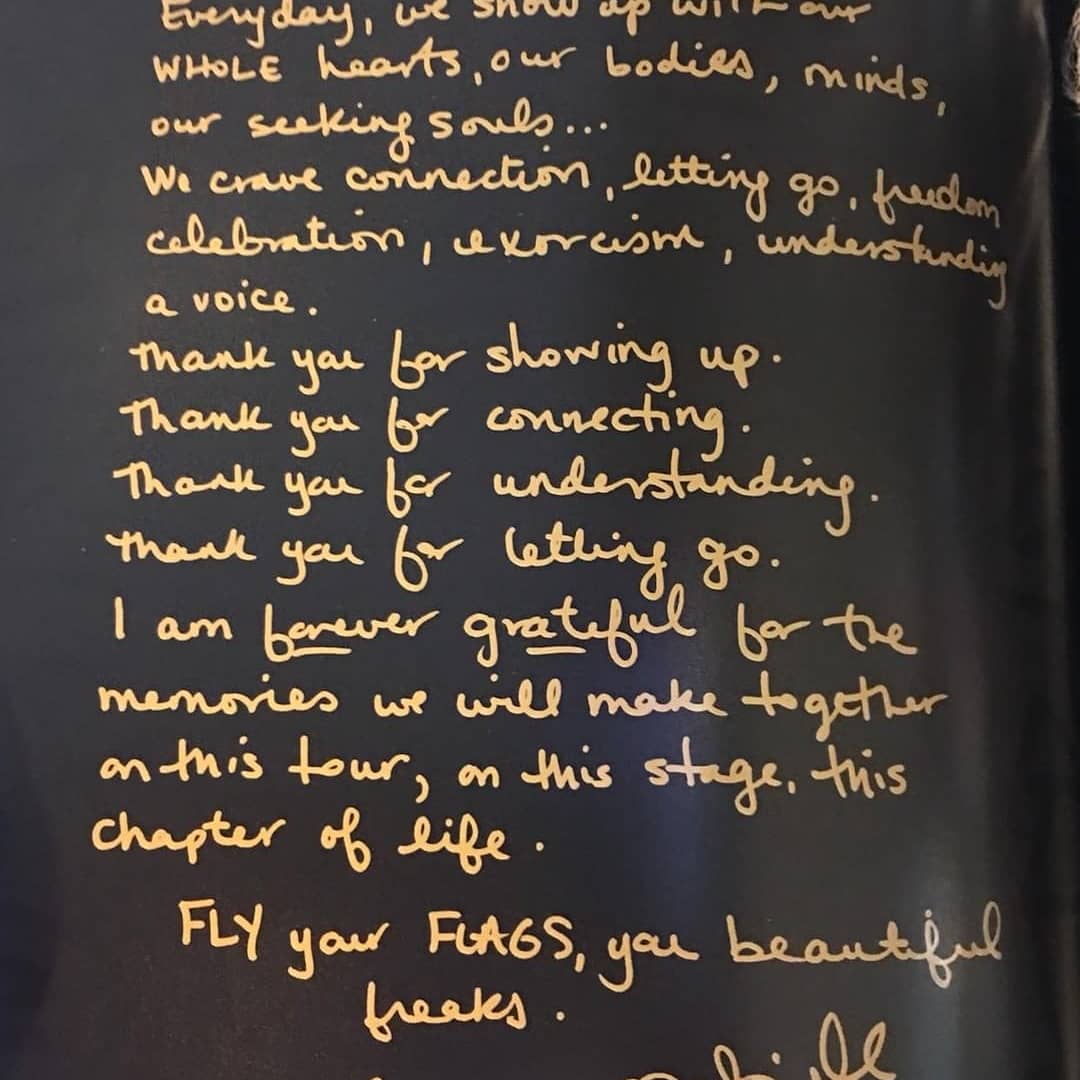 Everyday, we show up with our
WHOLE hearts, our bodies, minds,
our seeking souls...
We crave connection, letting go, freedom
celebration, exorcism, understanding
a voice.
Thank you for showing up.
Thank you for connecting.
Thank you for understanding.
Thank you for letting go.
I am forever grateful for the
memories we will make together
on this tour, on this stage, this
chapter of life.
FLY your FLAGS, you beautiful
freaks.